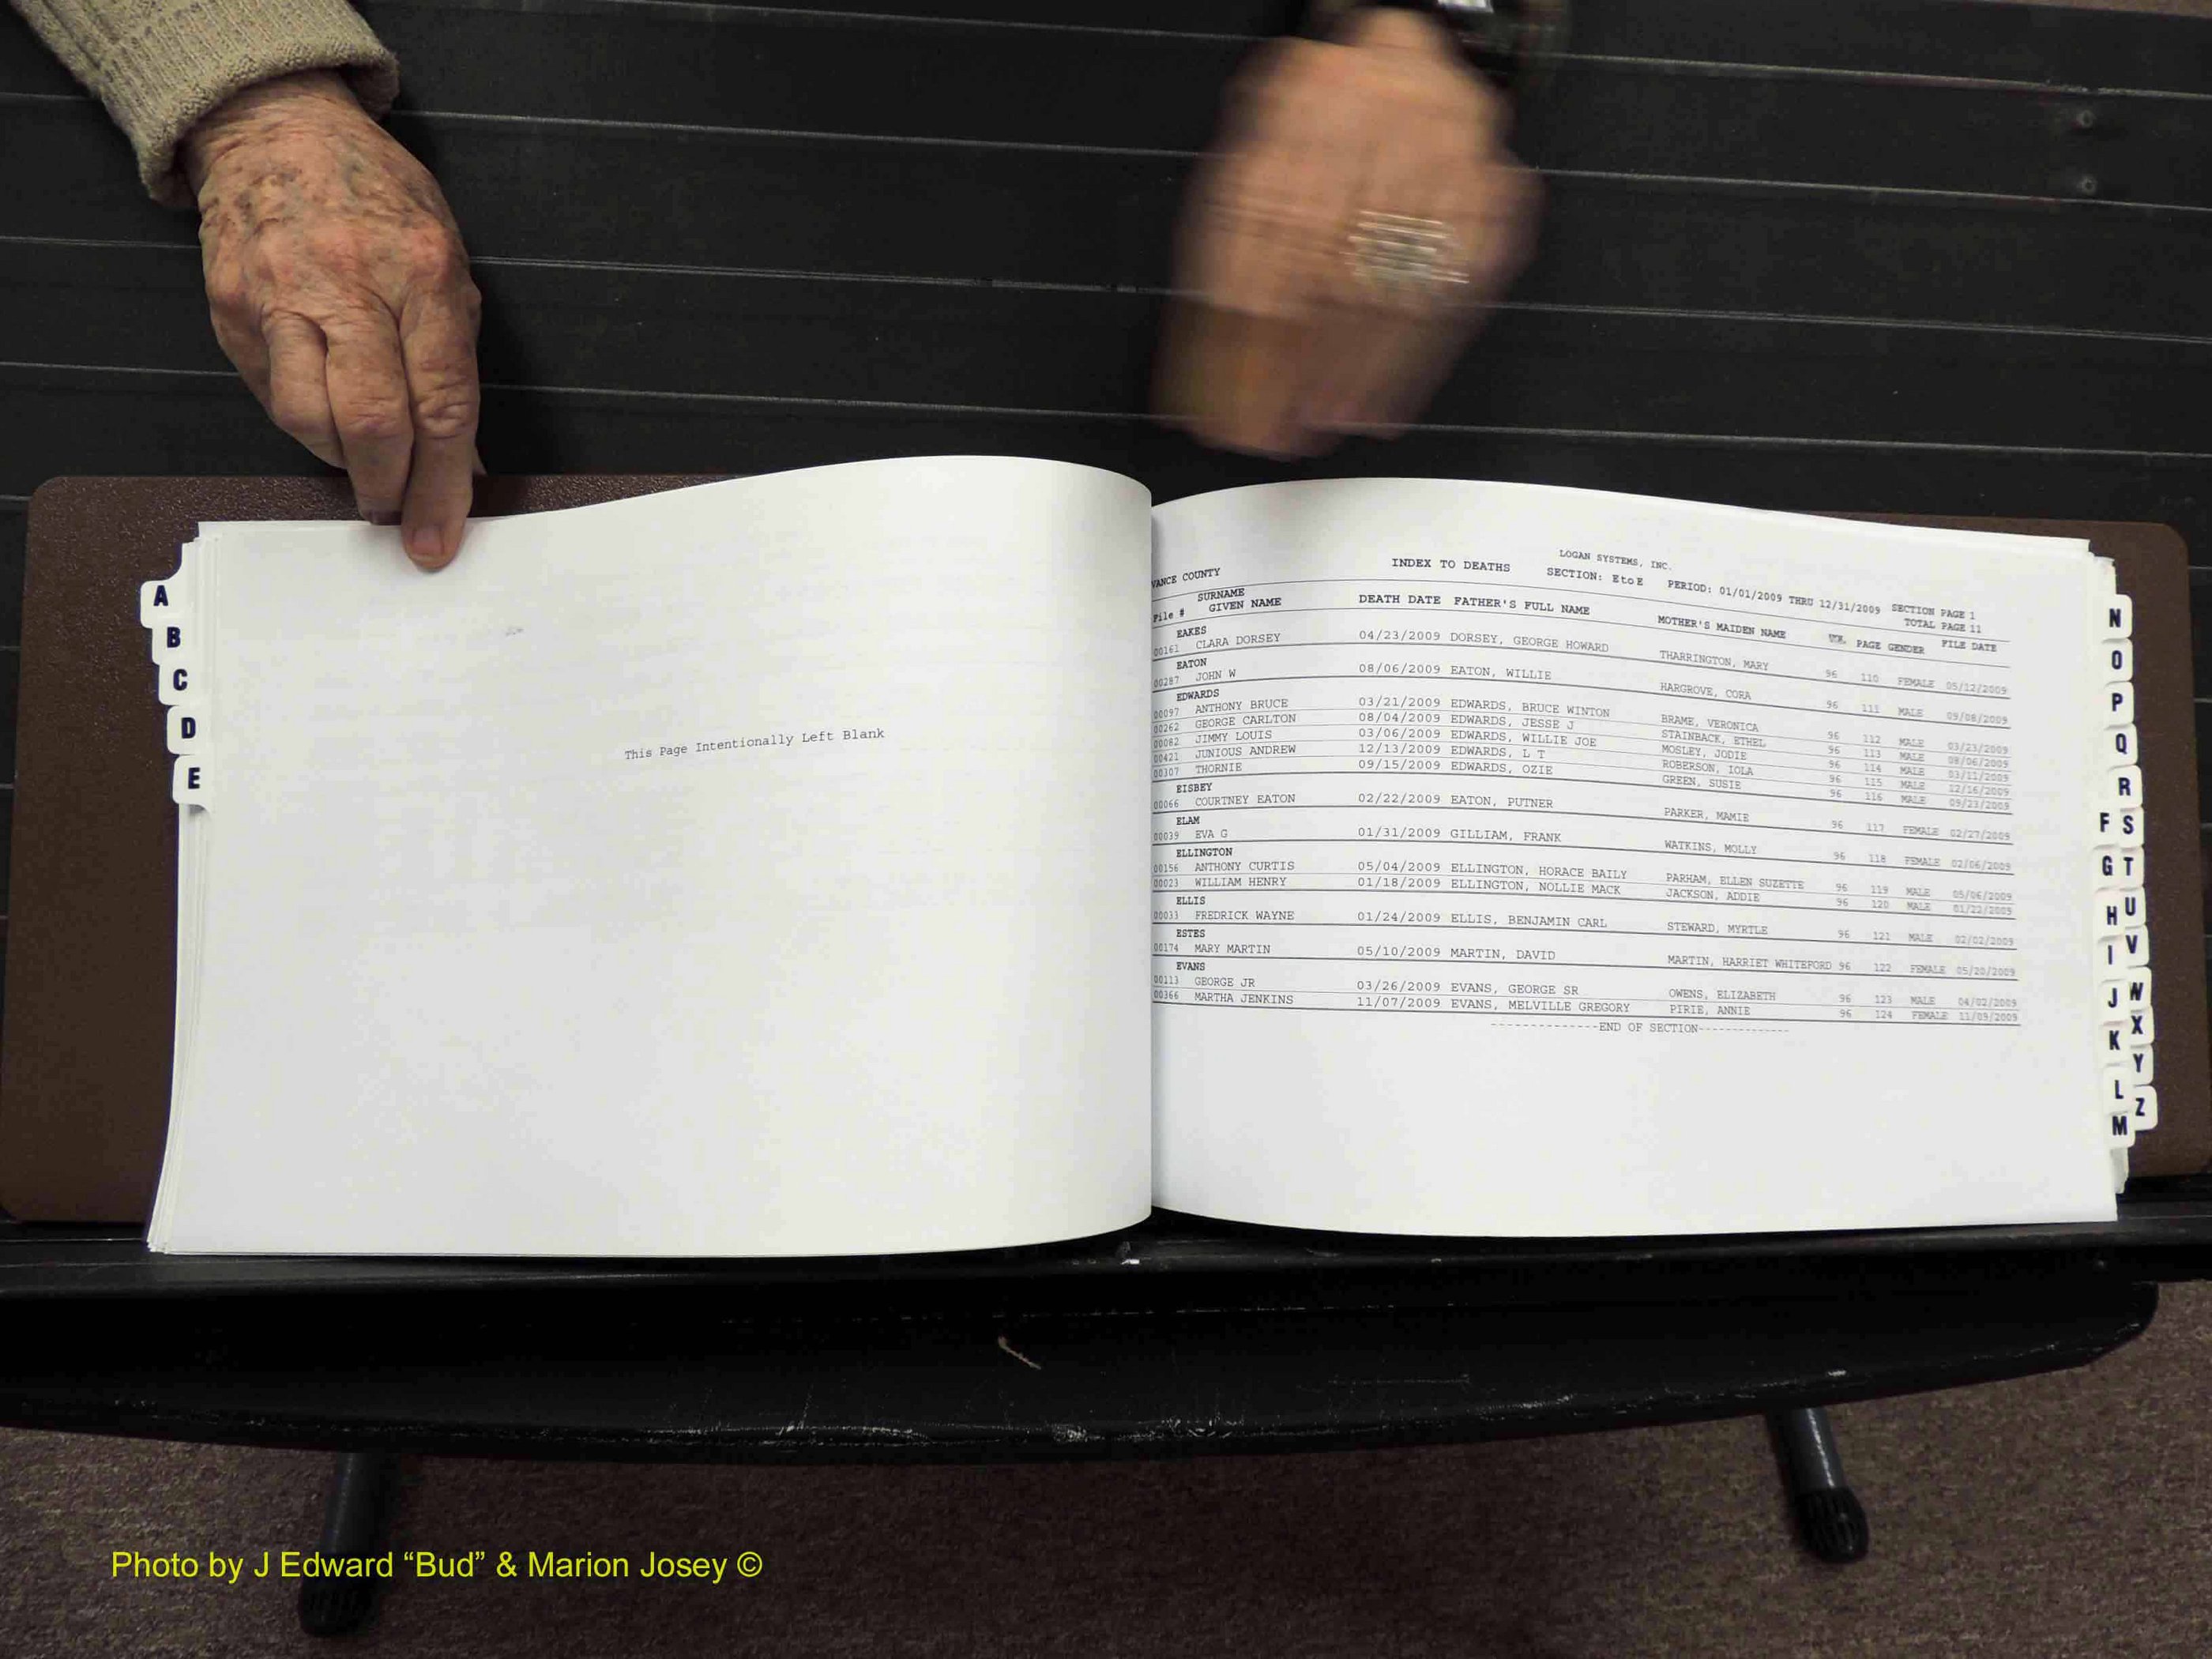 A
B
C
D
E
This Page Intentionally Left Blank
LOGAN SYSTEMS, INC.
VANCE COUNTY INDEX TO DEATHS SECTION: E to E PERIOD: 01/01/2009 THRU 12/31/2009 SECTION PAGE 1
TOTAL PAGE 11
SURNAME
File # GIVEN NAME DEATH DATE FATHER'S FULL NAME MOTHER'S MAIDEN NAME VOL. PAGE GENDER FILE DATE
EAKES
00161 CLARA DORSEY 04/23/2009 DORSEY, GEORGE HOWARD THARRINGTON, MARY 96 110 FEMALE 05/12/2009
EATON
00287 JOHN W 08/06/2009 EATON, WILLIE HARGROVE, CORA 96 111 MALE 09/08/2009
EDWARDS
00097 ANTHONY BRUCE 03/21/2009 EDWARDS, BRUCE WINTON BRAME, VERONICA 96 112 MALE 03/23/2009
00262 GEORGE CARLTON 08/04/2009 EDWARDS, JESSE J STAINBACK, ETHEL 96 113 MALE 08/06/2009
00082 JIMMY LOUIS 03/06/2009 EDWARDS, WILLIE JOE MOSLEY, JODIE 96 114 MALE 03/11/2009
00421 JUNIOUS ANDREW 12/13/2009 EDWARDS, L T ROBERSON, IOLA 96 115 MALE 12/16/2009
00307 THORNIE 09/15/2009 EDWARDS, OZIE GREEN, SUSIE 96 116 MALE 09/23/2009
EISBEY
00066 COURTNEY EATON 02/22/2009 EATON, PUTNER PARKER, MAMIE 96 117 FEMALE 02/27/2009
ELAM
00039 EVA G 01/31/2009 GILLIAM, FRANK WATKINS, MOLLY 96 118 FEMALE 02/06/2009
ELLINGTON
00156 ANTHONY CURTIS 05/04/2009 ELLINGTON, HORACE BAILY PARHAM, ELLEN SUZETTE 96 119 MALE 05/06/2009
00023 WILLIAM HENRY 01/18/2009 ELLINGTON, NOLLIE MACK JACKSON, ADDIE 96 120 MALE 01/22/2009
ELLIS
00033 FREDRICK WAYNE 01/24/2009 ELLIS, BENJAMIN CARL STEWARD, MYRTLE 96 121 MALE 02/02/2009
ESTES
00174 MARY MARTIN 05/10/2009 MARTIN, DAVID MARTIN, HARRIET WHITEFORD 96 122 FEMALE 05/20/2009
EVANS
00113 GEORGE JR 03/26/2009 EVANS, GEORGE SR OWENS, ELIZABETH 96 123 MALE 04/02/2009
00366 MARTHA JENKINS 11/07/2009 EVANS, MELVILLE GREGORY PIRIE, ANNIE 96 124 FEMALE 11/09/2009
--------------END OF SECTION------------
N
O
P
Q
R
F S
G T
H U
I V
J W
K X
Y
L Z
M
Photo by J Edward “Bud” & Marion Josey ©